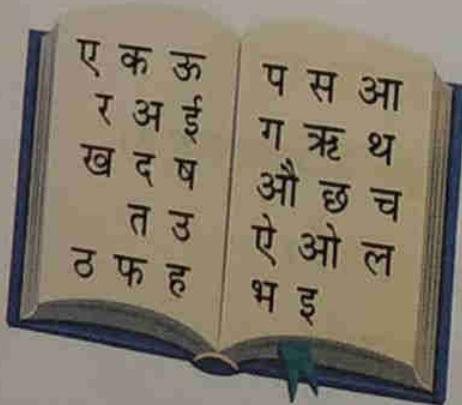 ए क ऊ
र अ ई
ख द ष
त उ
ठ फ ह
प स आ
ग ऋ थ
औ छ च
ऐ ओ ल
भ इ